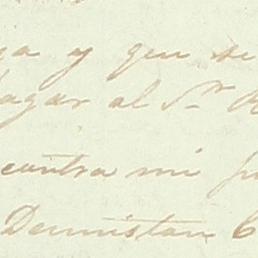 y que se
pagar al Sr
contra mi
Dennistan